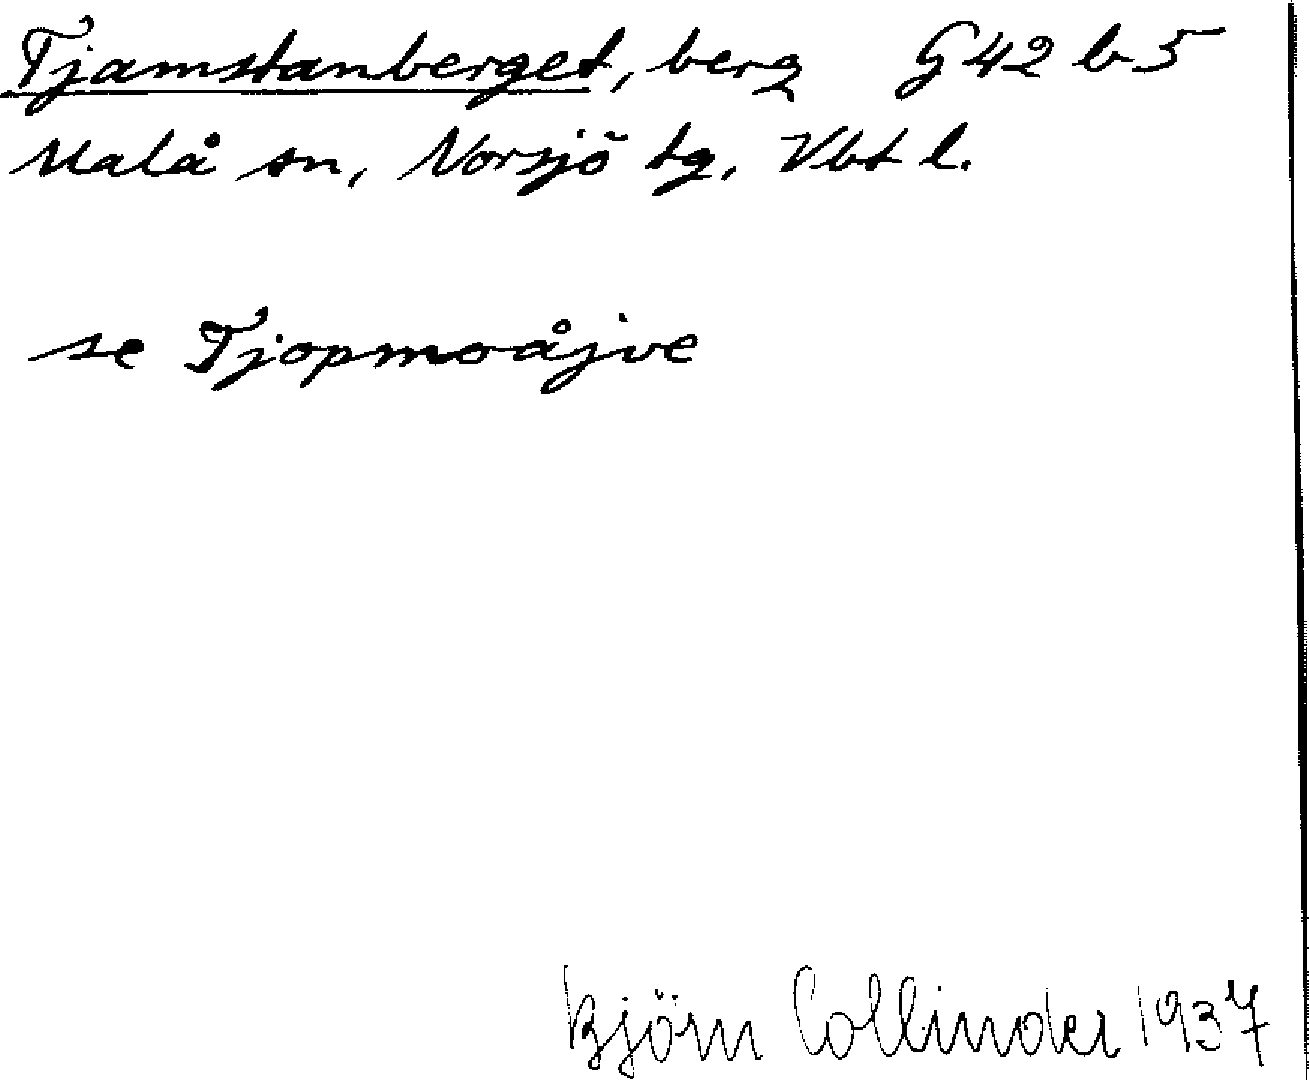 Tjamstanberget, berg G42 b 5
Malå sn, Norsjö tg, Vbt l.
se Tjopmoåjve
Björn Collinder 1937